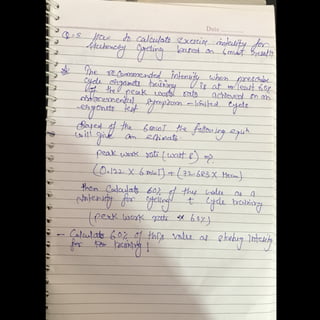 Date
Q.5 How to calculate Exercise intensity for
stationery Cycling based on 6mwt result
The recommended intensity when prescribe
cycle ergometer training is at at least 60%
of the peak work rate achieved on an
incremental symptom-limited cycle
ergometer test
Based of the 6mwT the following eqn
will give an estimate
peak work rate (watt s) =
(0.122 X 6mwT) + (72.683 X Hem)
then Calculate 60% of this value as a
intensity for cycling cycle training
(peak work rate
- Calculate 60% of this value as intensity
for training!